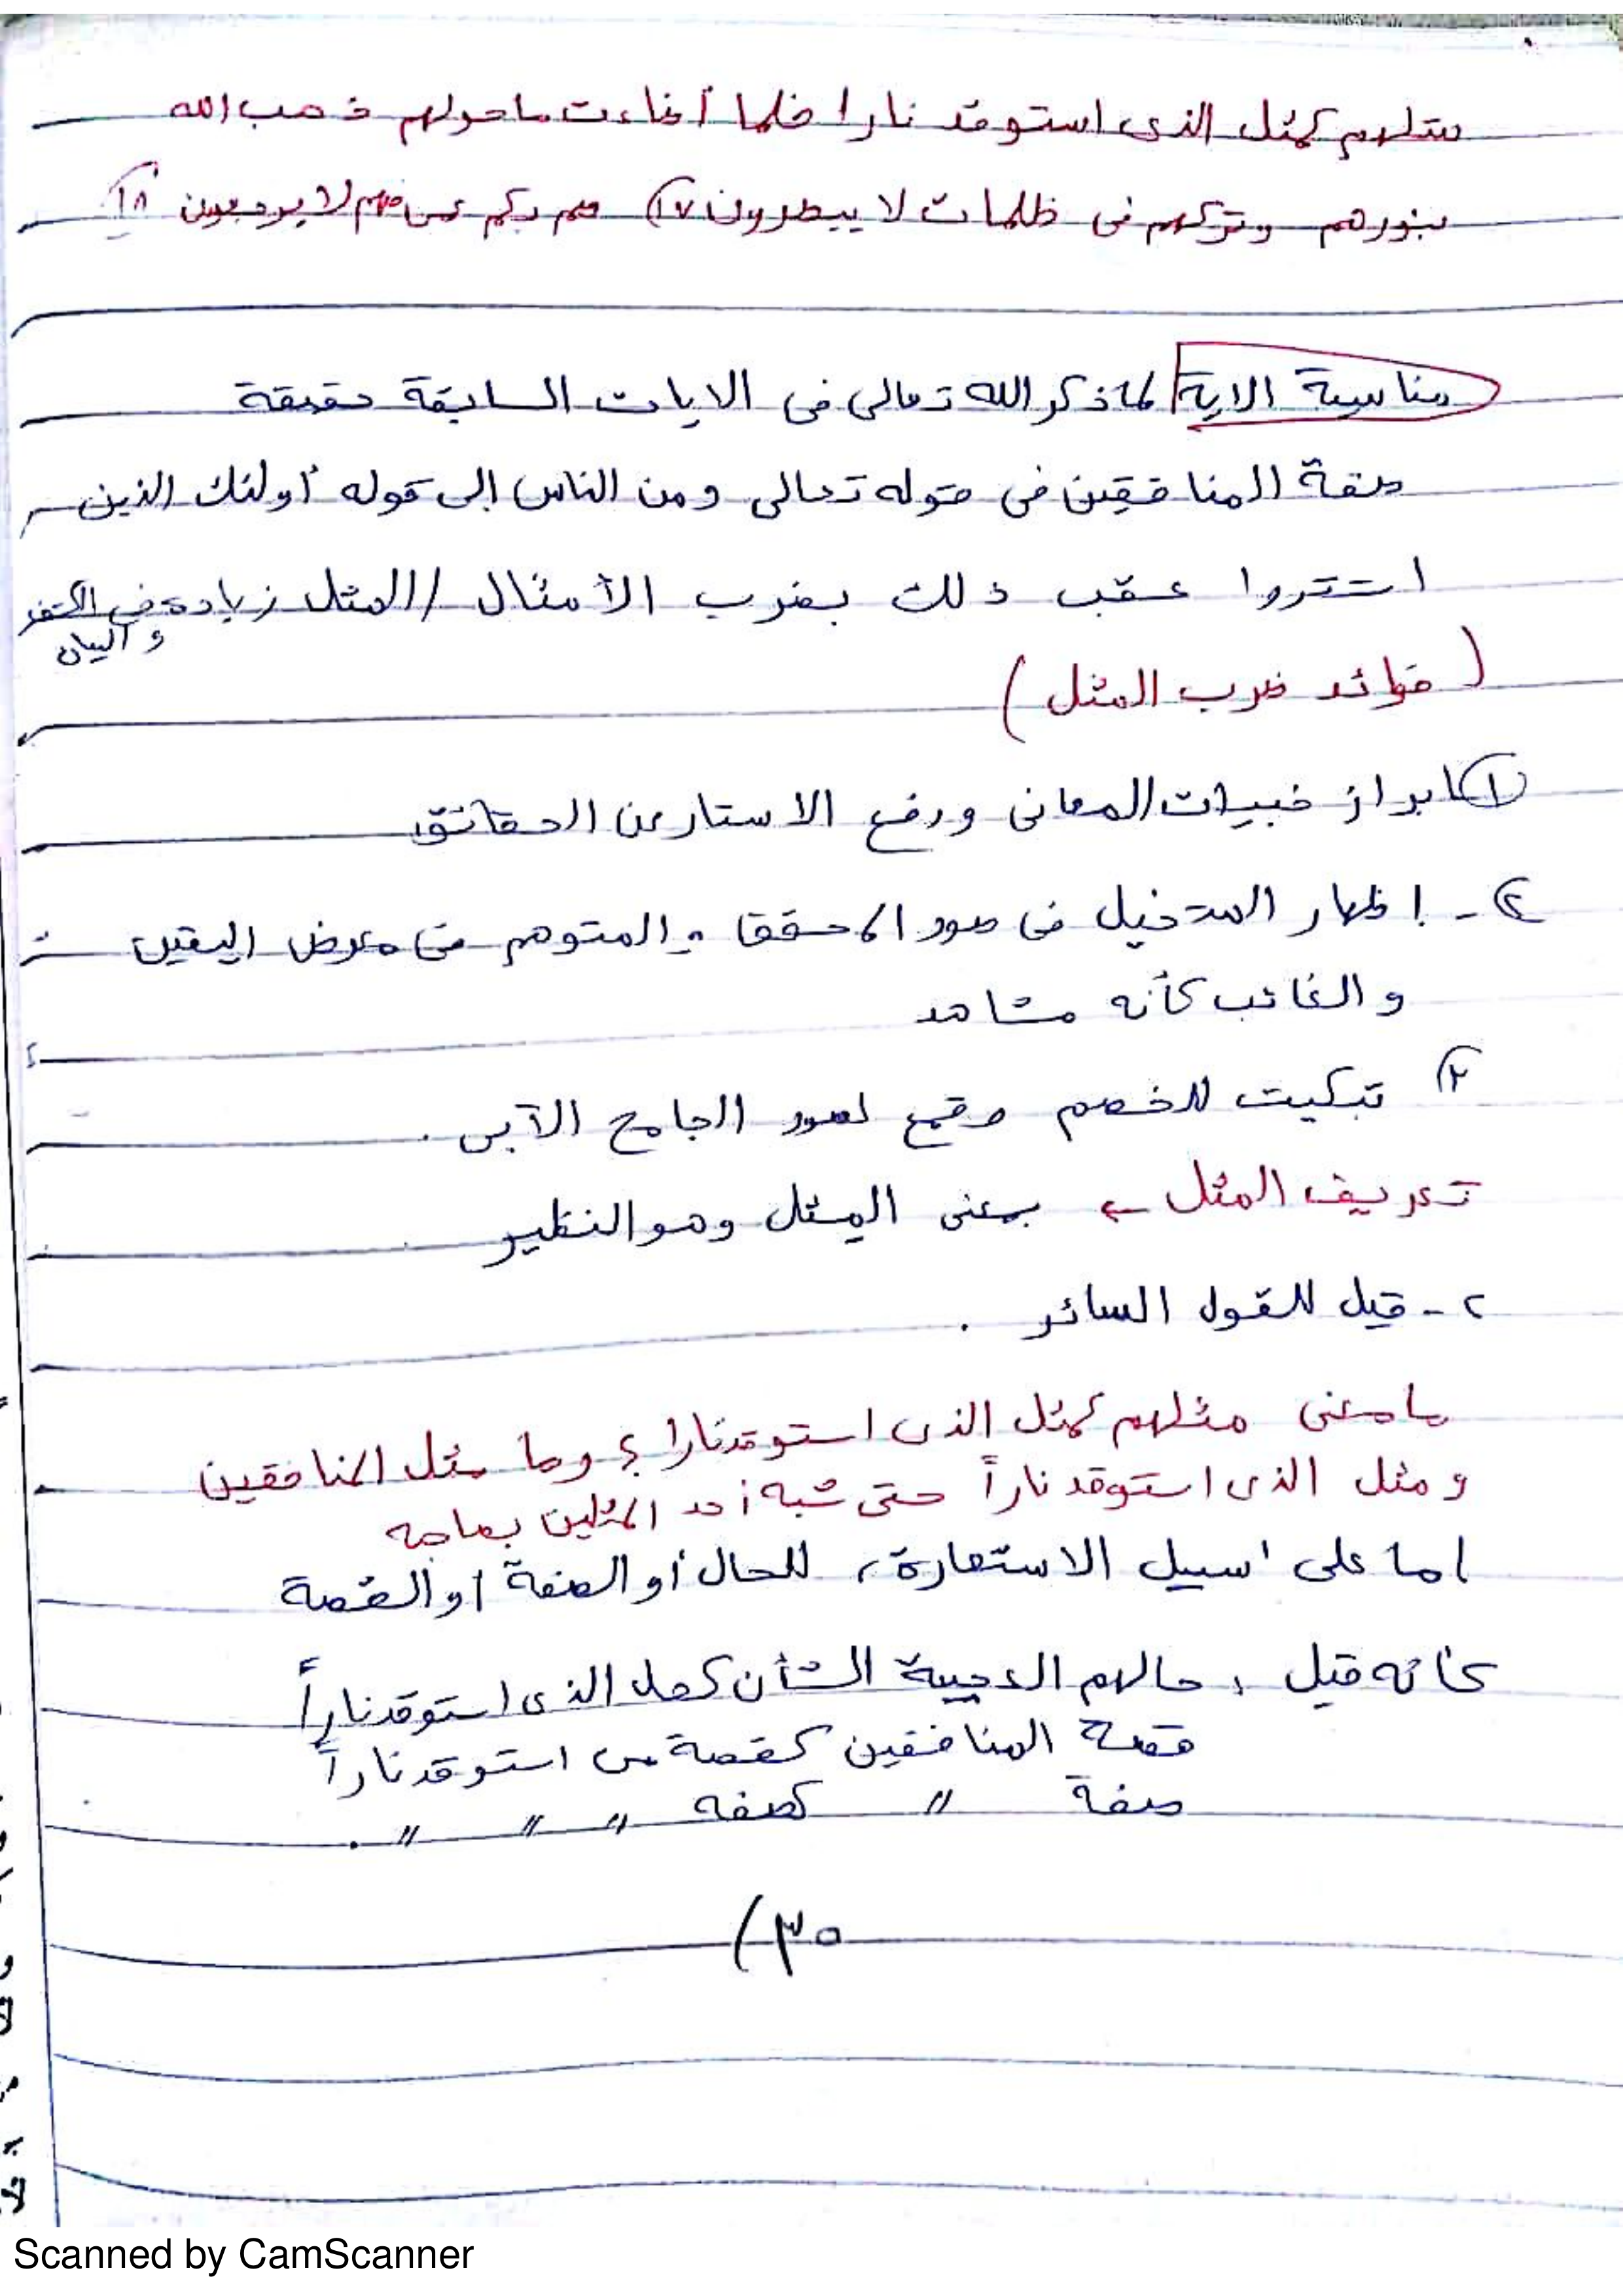 مثلهم كمثل الذى استوقد نارا فلما أضاءت ماحولهم ذهب الله
بنورهم وتركهم فى ظلمات لا يبصرون ١٧) صم بكم عمى فهم لا يرجعون ١٨)
مناسبة الاية لما ذكر الله تعالى فى الايات السابقة حقيقة
صفة المنافقين فى قوله تعالى ومن الناس إلى قوله أولئك الذين
اشتروا عقب ذلك بضرب الأمثال / المثل زيادة فى الكشف
والبيان
( فوائد ضرب المثل )
١) ابراز خبيات المعانى ورفع الاستار عن الحقائق
٢ - إظهار المتخيل فى صور المحقق والمتوهم فى معرض اليقين
والغائب كأنه مشاهد
٣) تبكيت للخصم وقمع لصور الجامح الآبى .
تعريف المثل ← بمعنى المِثل وهو النظير
٢ - قيل للقول السائر .
ما معنى مثلهم كمثل الذى استوقد نارا ؟ وما مثل المنافقين
ومثل الذى استوقد ناراً حتى شبه أحد المثلين بصاحبه
اما على سبيل الاستعارة، للحال أو الصفة او القصة
كانه قيل ، حالهم العجيبة الشأن كحال الذى استوقد ناراً
قصة المنافقين كقصة من استوقد ناراً
صفة 〃 كصفه 〃 〃 〃 .
٣٥)
Scanned by CamScanner